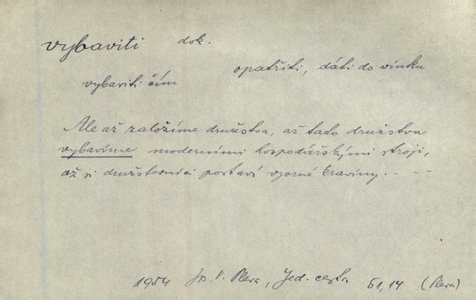 vybaviti dok.
opatřiti, dáti do vínku
vybaviti čím
Ale až založíme družstva, až tato družstva
vybavíme moderními hospodářskými stroji,
až si družstevníci postaví vzorné kravíny. - - -
1954 V. Jed. cesta 51, 14